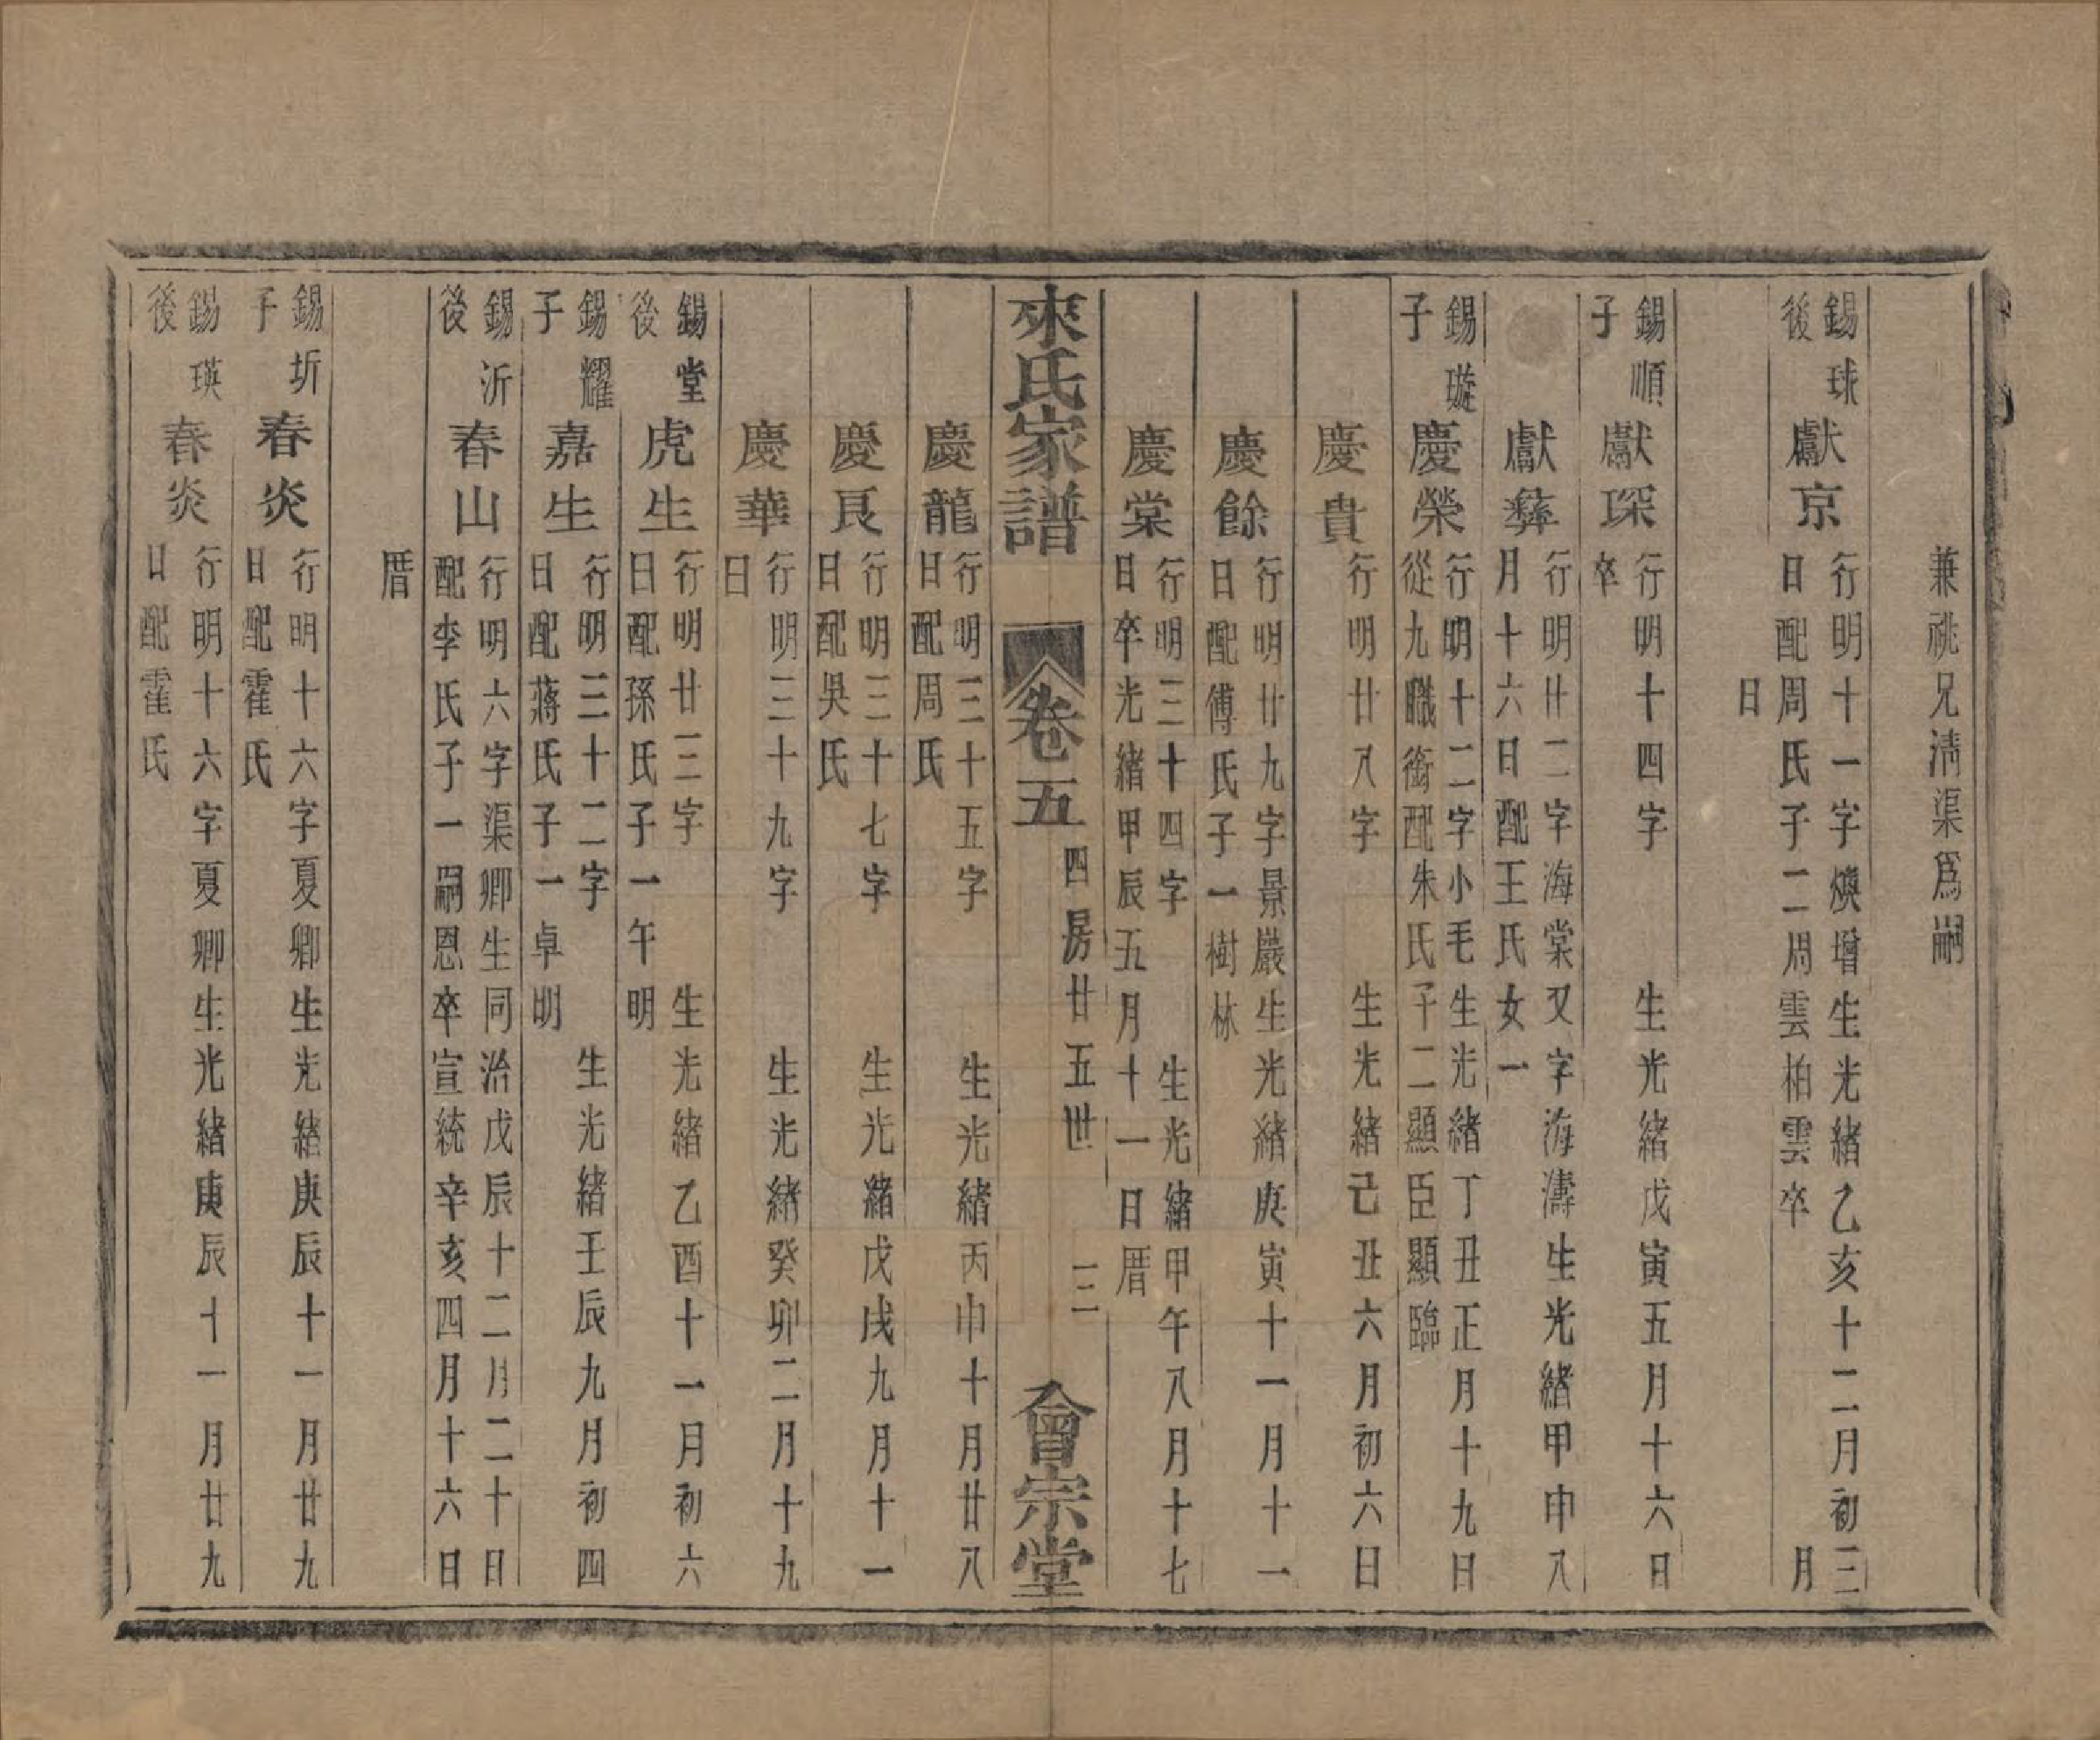 兼祧兄清渠爲嗣
錫球
後
獻京
行明十一字煥增生光緒乙亥十二月初三
日配周氏子二周雲柏雲卒　月
日
錫順
子
獻琛
行明十四字　生光緒戊寅五月十六日
卒
獻彝
行明廿二字海棠又字海濤生光緒甲申八
月十六日配王氏女一
錫璇
子
慶榮
行明十二字小毛生光緒丁丑正月十九日
從九職銜配朱氏子二顯臣顯臨
慶貴
行明廿八字　生光緒己丑六月初六日
慶餘
行明廿九字景巖生光緒庚寅十一月十一
日配傅氏子一樹林
慶棠
行明三十四字　生光緒甲午八月十七
日卒光緒甲辰五月十一日厝
來氏家譜　卷五　四房廿五世　三　會宗堂
慶龍
行明三十五字　生光緒丙申十月廿八
日配周氏
慶良
行明三十七字　生光緒戊戌九月十一
日配吳氏
慶華
行明三十九字　生光緒癸卯二月十九
日
錫堂
後
虎生
行明廿三字　生光緒乙酉十一月初六
日配孫氏子一午明
錫耀
子
嘉生
行明三十二字　生光緒壬辰九月初四
日配蔣氏子一卓明
錫沂
後
春山
行明六字渠卿生同治戊辰十二月二十日
配李氏子一嗣恩卒宣統辛亥四月十六日
厝
錫圻
子
春炎
行明十六字夏卿生光緒庚辰十一月廿九
日配霍氏
錫瑛
後
春炎
行明十六字夏卿生光緒庚辰十一月廿九
日配霍氏